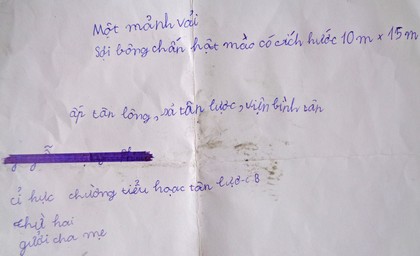 Một mảnh vải
Sợi bông chấn hật mào có cích hước 10 m x 15 m
ấp tân lông, xả tân lược, viện bình tân
cỉ hực chường tiểu hoạc tân lược B
chự hai
gưởi cha mẹ